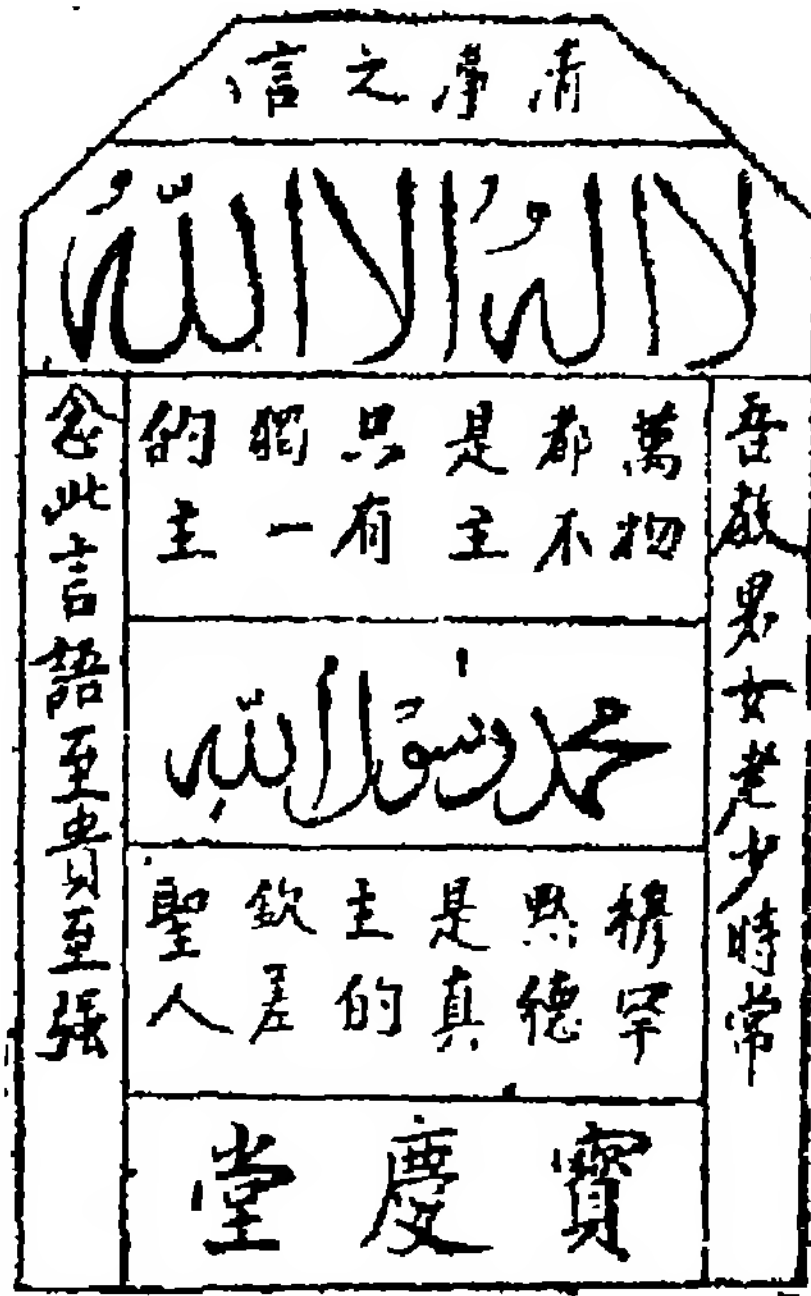 清真之言
لا اله الا الله
吾教男女老少時常
萬物
都不
是主
只有
獨一
的主
محمد رسول الله
穆罕
默德
是真
主的
欽差
聖人
念此言語至貴至強
寶慶堂